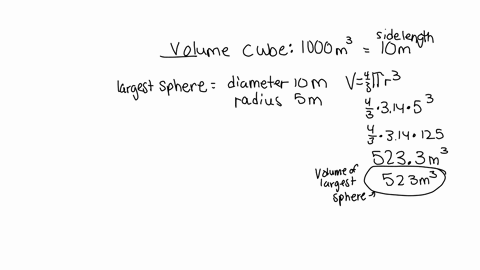 Volume Cube: 1000m³ = 10m
side length
largest sphere = diameter 10m
radius 5m
V=4/3πr³
4/3·3.14·5³
4/3·3.14·125
523.3m³
Volume of
largest
sphere →
523m³